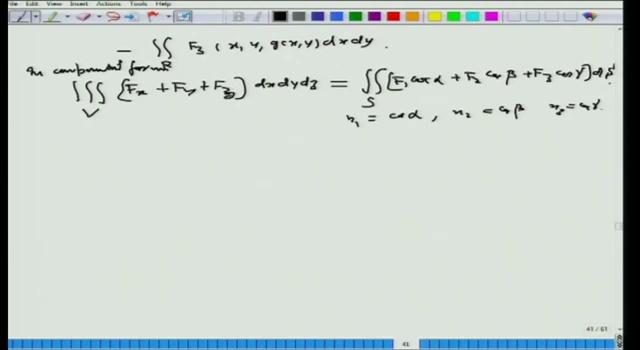 View Insert Actions Tools Help
− ∬_R F₃ (x, y, g(x,y)) dxdy.
In component form
∭_V [F_x + F_y + F_z] dxdydz = ∬_S [F₁ cos α + F₂ cos β + F₃ cos γ] ds
n₁ = cos α, n₂ = cos β n₃ = cos γ.
41 / 61
41